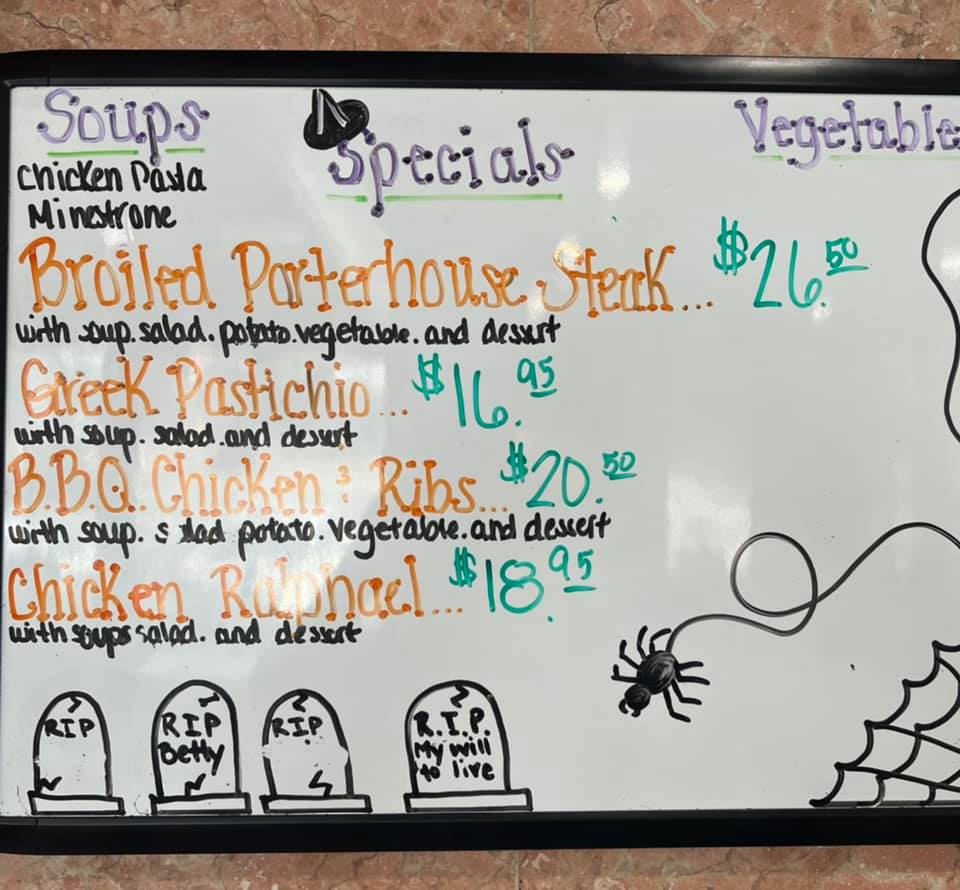 Soups
Specials
Vegetable
Chicken Pasta
Minestrone
Broiled Porterhouse Steak... $26.50
with soup. salad. potato. vegetable. and dessert
Greek Pastichio... $16.95
with soup. salad. and dessert
B.B.Q. Chicken & Ribs... $20.50
with soup. salad potato. vegetable. and dessert
Chicken Ralphael... $18.95
with soups salad. and dessert
RIP
RIP
Betty
RIP
R.I.P.
My will
to live